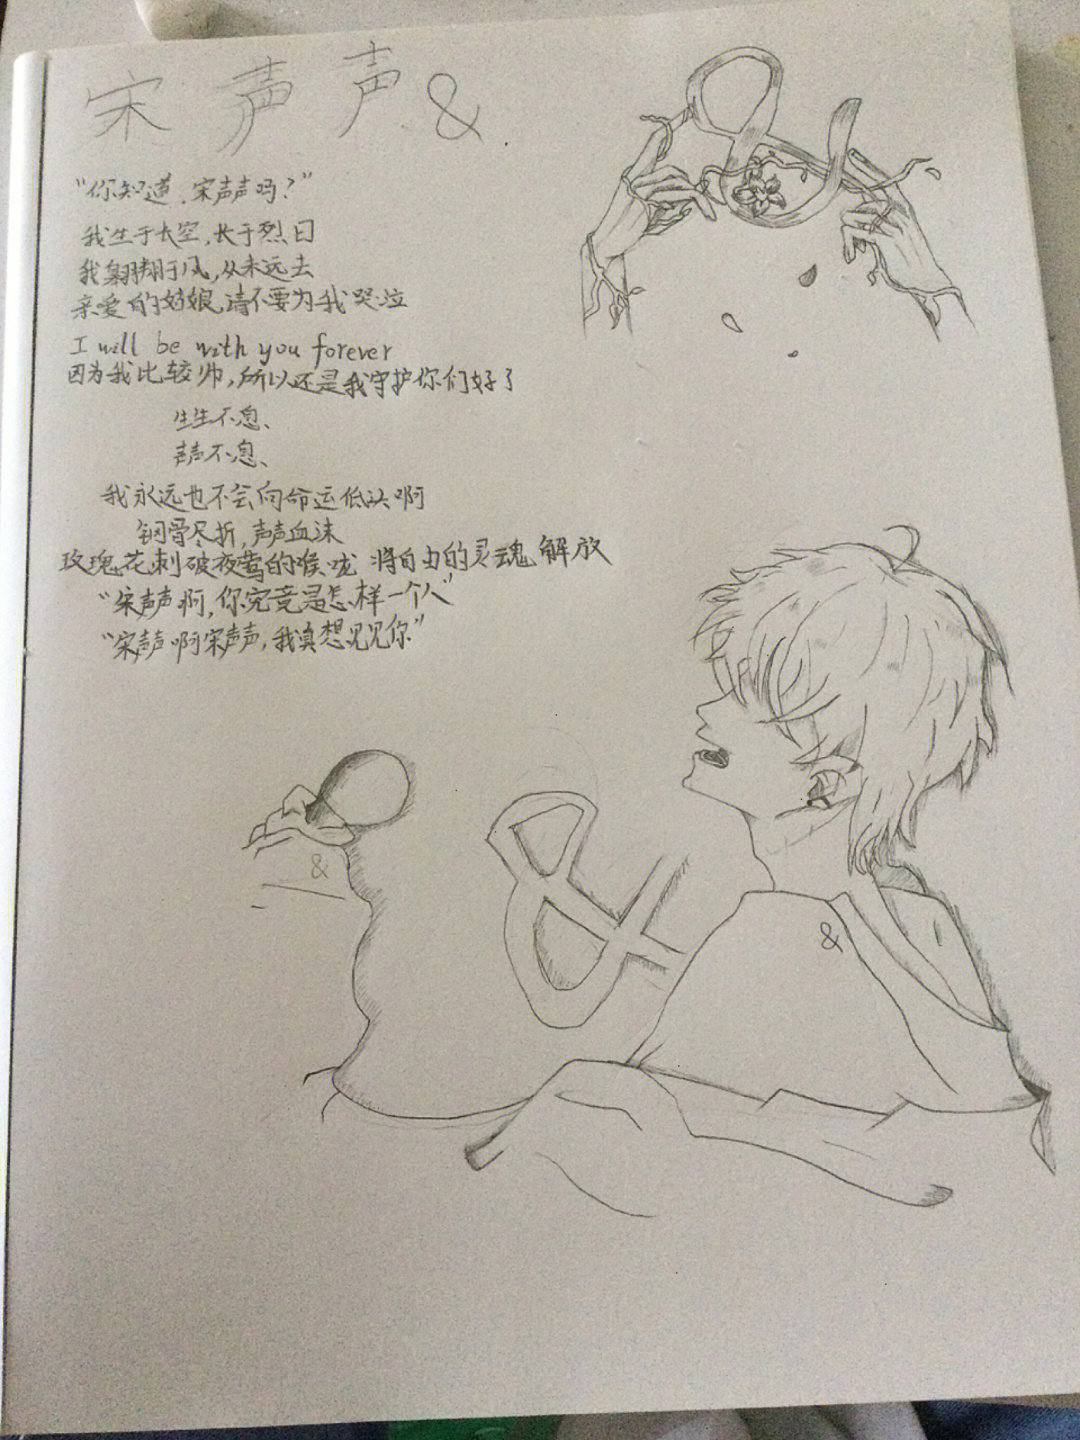 宋声声&
"你知道,宋声声吗?"
我生于长空,长于烈日
我翱翔于风,从未远去
亲爱的姑娘,请不要为我哭泣
I will be with you forever
因为我比较帅,所以还是我守护你们好了
生生不息、
声声不息、
我永远也不会向命运低头啊
钢骨尽折,声声血沫
玫瑰花刺破夜莺的喉咙 将自由的灵魂解放
"宋声声啊,你究竟是怎样一个人"
"宋声声啊宋声声,我真想见见你"
&
&
&
&